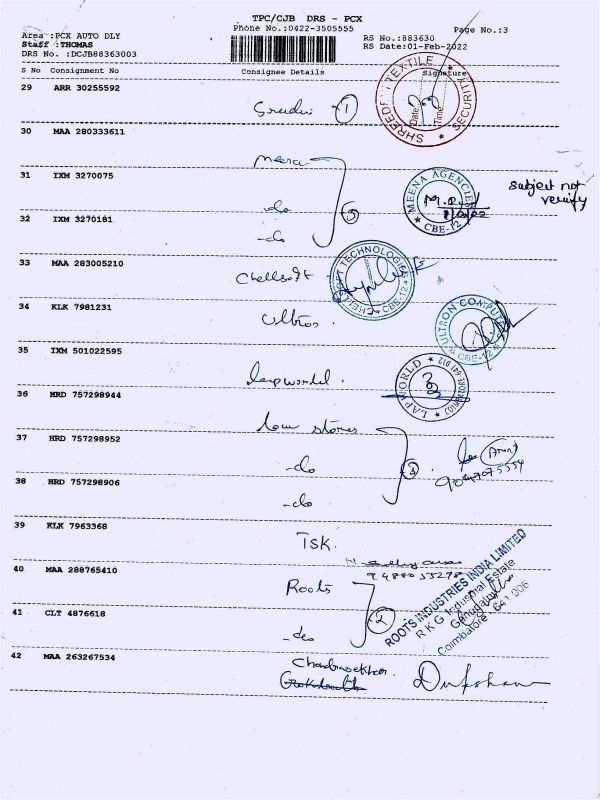 TPC/CJB DRS - PCX
Phone No.:0422-3505555
Page No.:3
Area :PCX AUTO DLY
RS No.:883630
Staff :THOMAS
RS Date:01-Feb-2022
DRS No. :DCJB88363003
S No Consignment No Consignee Details Signature
29 ARR 30255592
SHREEDEVI TEXTILE SECURITY
Date
Time
1
30 MAA 280333611
meera
31 IXM 3270075
-do
3
MEENA AGENCIES
CBE-12
subject not
verify
32 IXM 3270181
-do
33 MAA 283005210
Chellsoft
HELLSOFT TECHNOLOGIES
CBE-12
34 KLK 7981231
Ultron
ULTRON COMPUTE
CBE-12
35 IXM 501022595
Lapworld.
LAPWORLD
COIMBATORE-641 012
36 HRD 757298944
low stores
37 HRD 757298952
-do
3
9047075554
38 HRD 757298906
-do
39 KLK 7963368
TSK.
40 MAA 288765410
Roots
ROOTS INDUSTRIES INDIA LIMITED
R K G Industrial Estate
Ganapathy
Coimbatore - 641 006
41 CLT 4876618
-do
2
42 MAA 263267534
Chandrasekhar